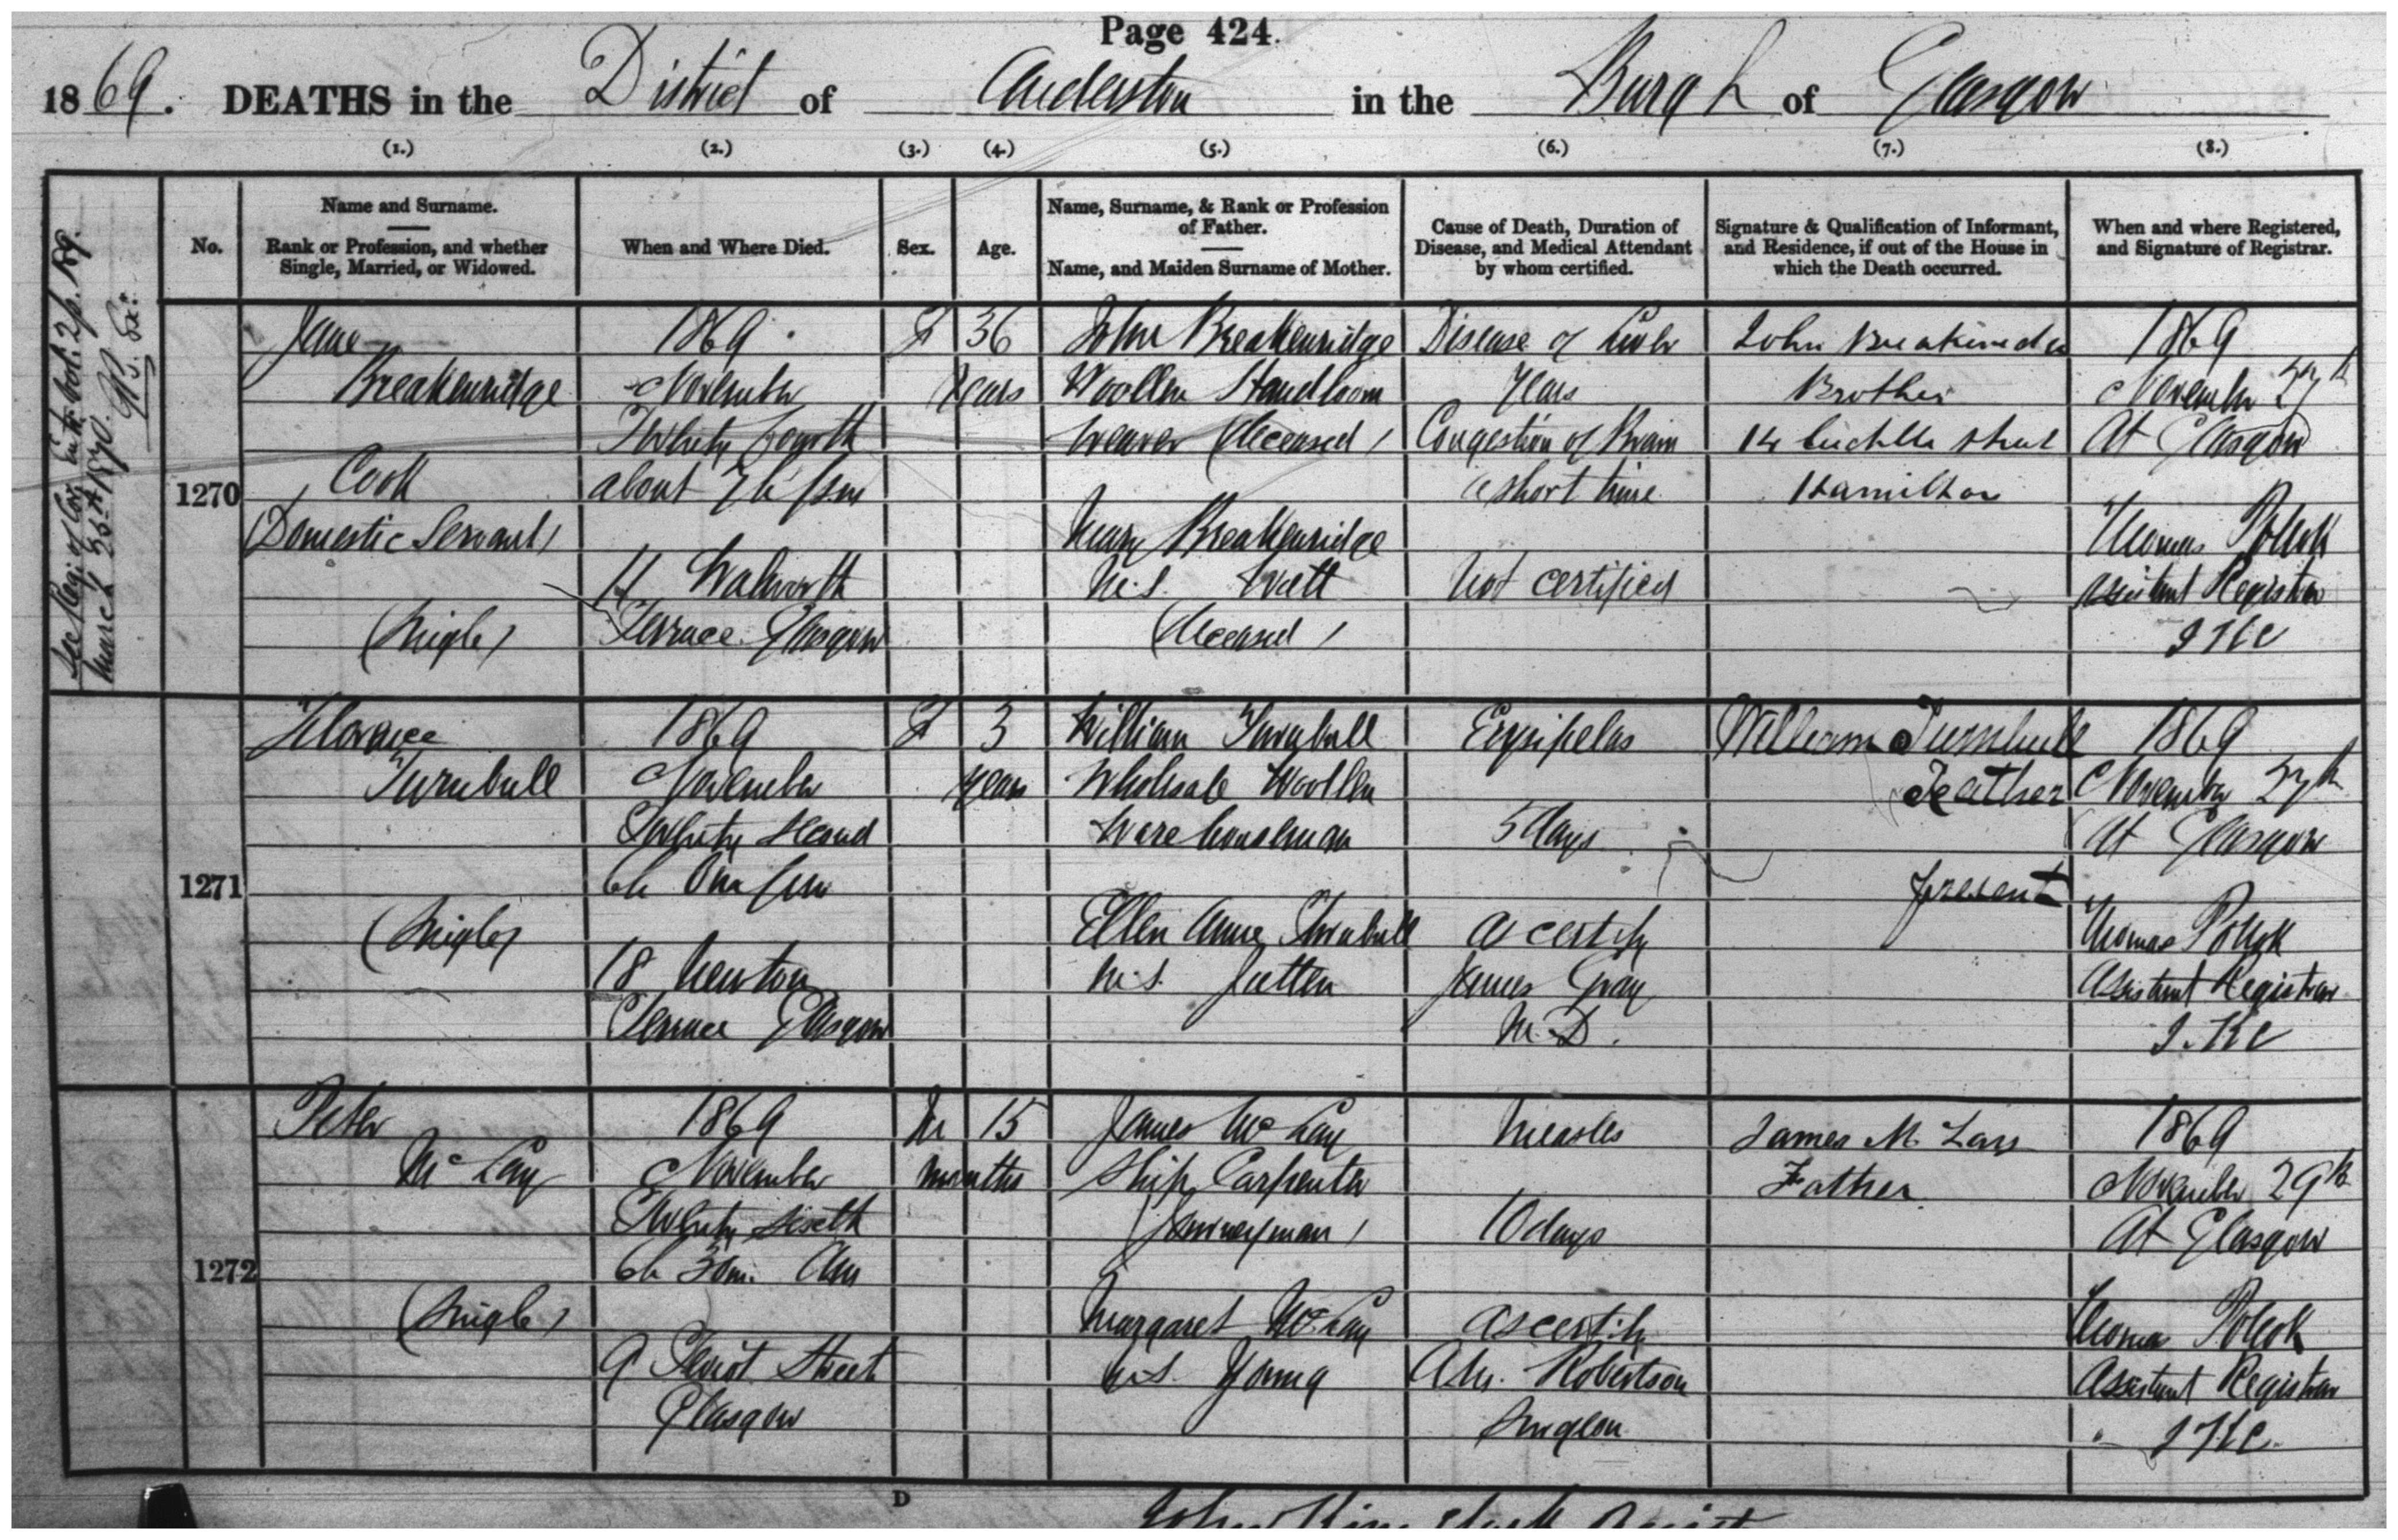 Page 424.
1869. DEATHS in the District of Anderston in the Burgh of Glasgow
(1.) (2.) (3.) (4.) (5.) (6.) (7.) (8.)
No.
Name and Surname.
Rank or Profession, and whether
Single, Married, or Widowed.
When and Where Died.
Sex.
Age.
Name, Surname, & Rank or Profession
of Father.
Name, and Maiden Surname of Mother.
Cause of Death, Duration of
Disease, and Medical Attendant
by whom certified.
Signature & Qualification of Informant,
and Residence, if out of the House in
which the Death occurred.
When and where Registered,
and Signature of Registrar.
See Reg. of Cor. Ent. Vol. 2 p. 189.
March 25th 1870.
1270
Jane
Breakenridge
Cook
(Domestic Servant)
(Single)
1869
November
Twenty fourth
about 7h pm
11 Walworth
Terrace Glasgow
F
36
years
John Breakenridge
Woollen Handloom
Weaver (deceased)
Mary Breakenridge
M.S. Watt
(deceased)
Disease of Liver
Years
Congestion of Brain
a short time
Not certified
John
Brother
14 Street
Hamilton
1869
November 27th
At Glasgow
Thomas Pollok
Assistant Registrar
J K C
1271
Florance
Turnbull
(Single)
1869
November
Twenty second
6h 0m pm
18 Newton
Terrace Glasgow
F
3
years
William Turnbull
Wholesale Woollen
Warehouseman
Ellen Anne Turnbull
M.S. Jutten
Erysipelas
5 days
As certify
James Gray
M.D.
William Turnbull
Feather
present
1869
November 27th
At Glasgow
Thomas Pollok
Assistant Registrar
J. K C
1272
Peter
McLay
(Single)
1869
November
Twenty sixth
6h 30m. Am
9 Teviot Street
Glasgow
M
15
months
James McLay
Ship Carpenter
(Journeyman)
Margaret McLay
M.S. Young
Measles
10 days
As certify
Robertson
Surgeon
James M. Lay
Father
1869
November 29th
At Glasgow
Thomas Pollok
Assistant Registrar
J K C.
D